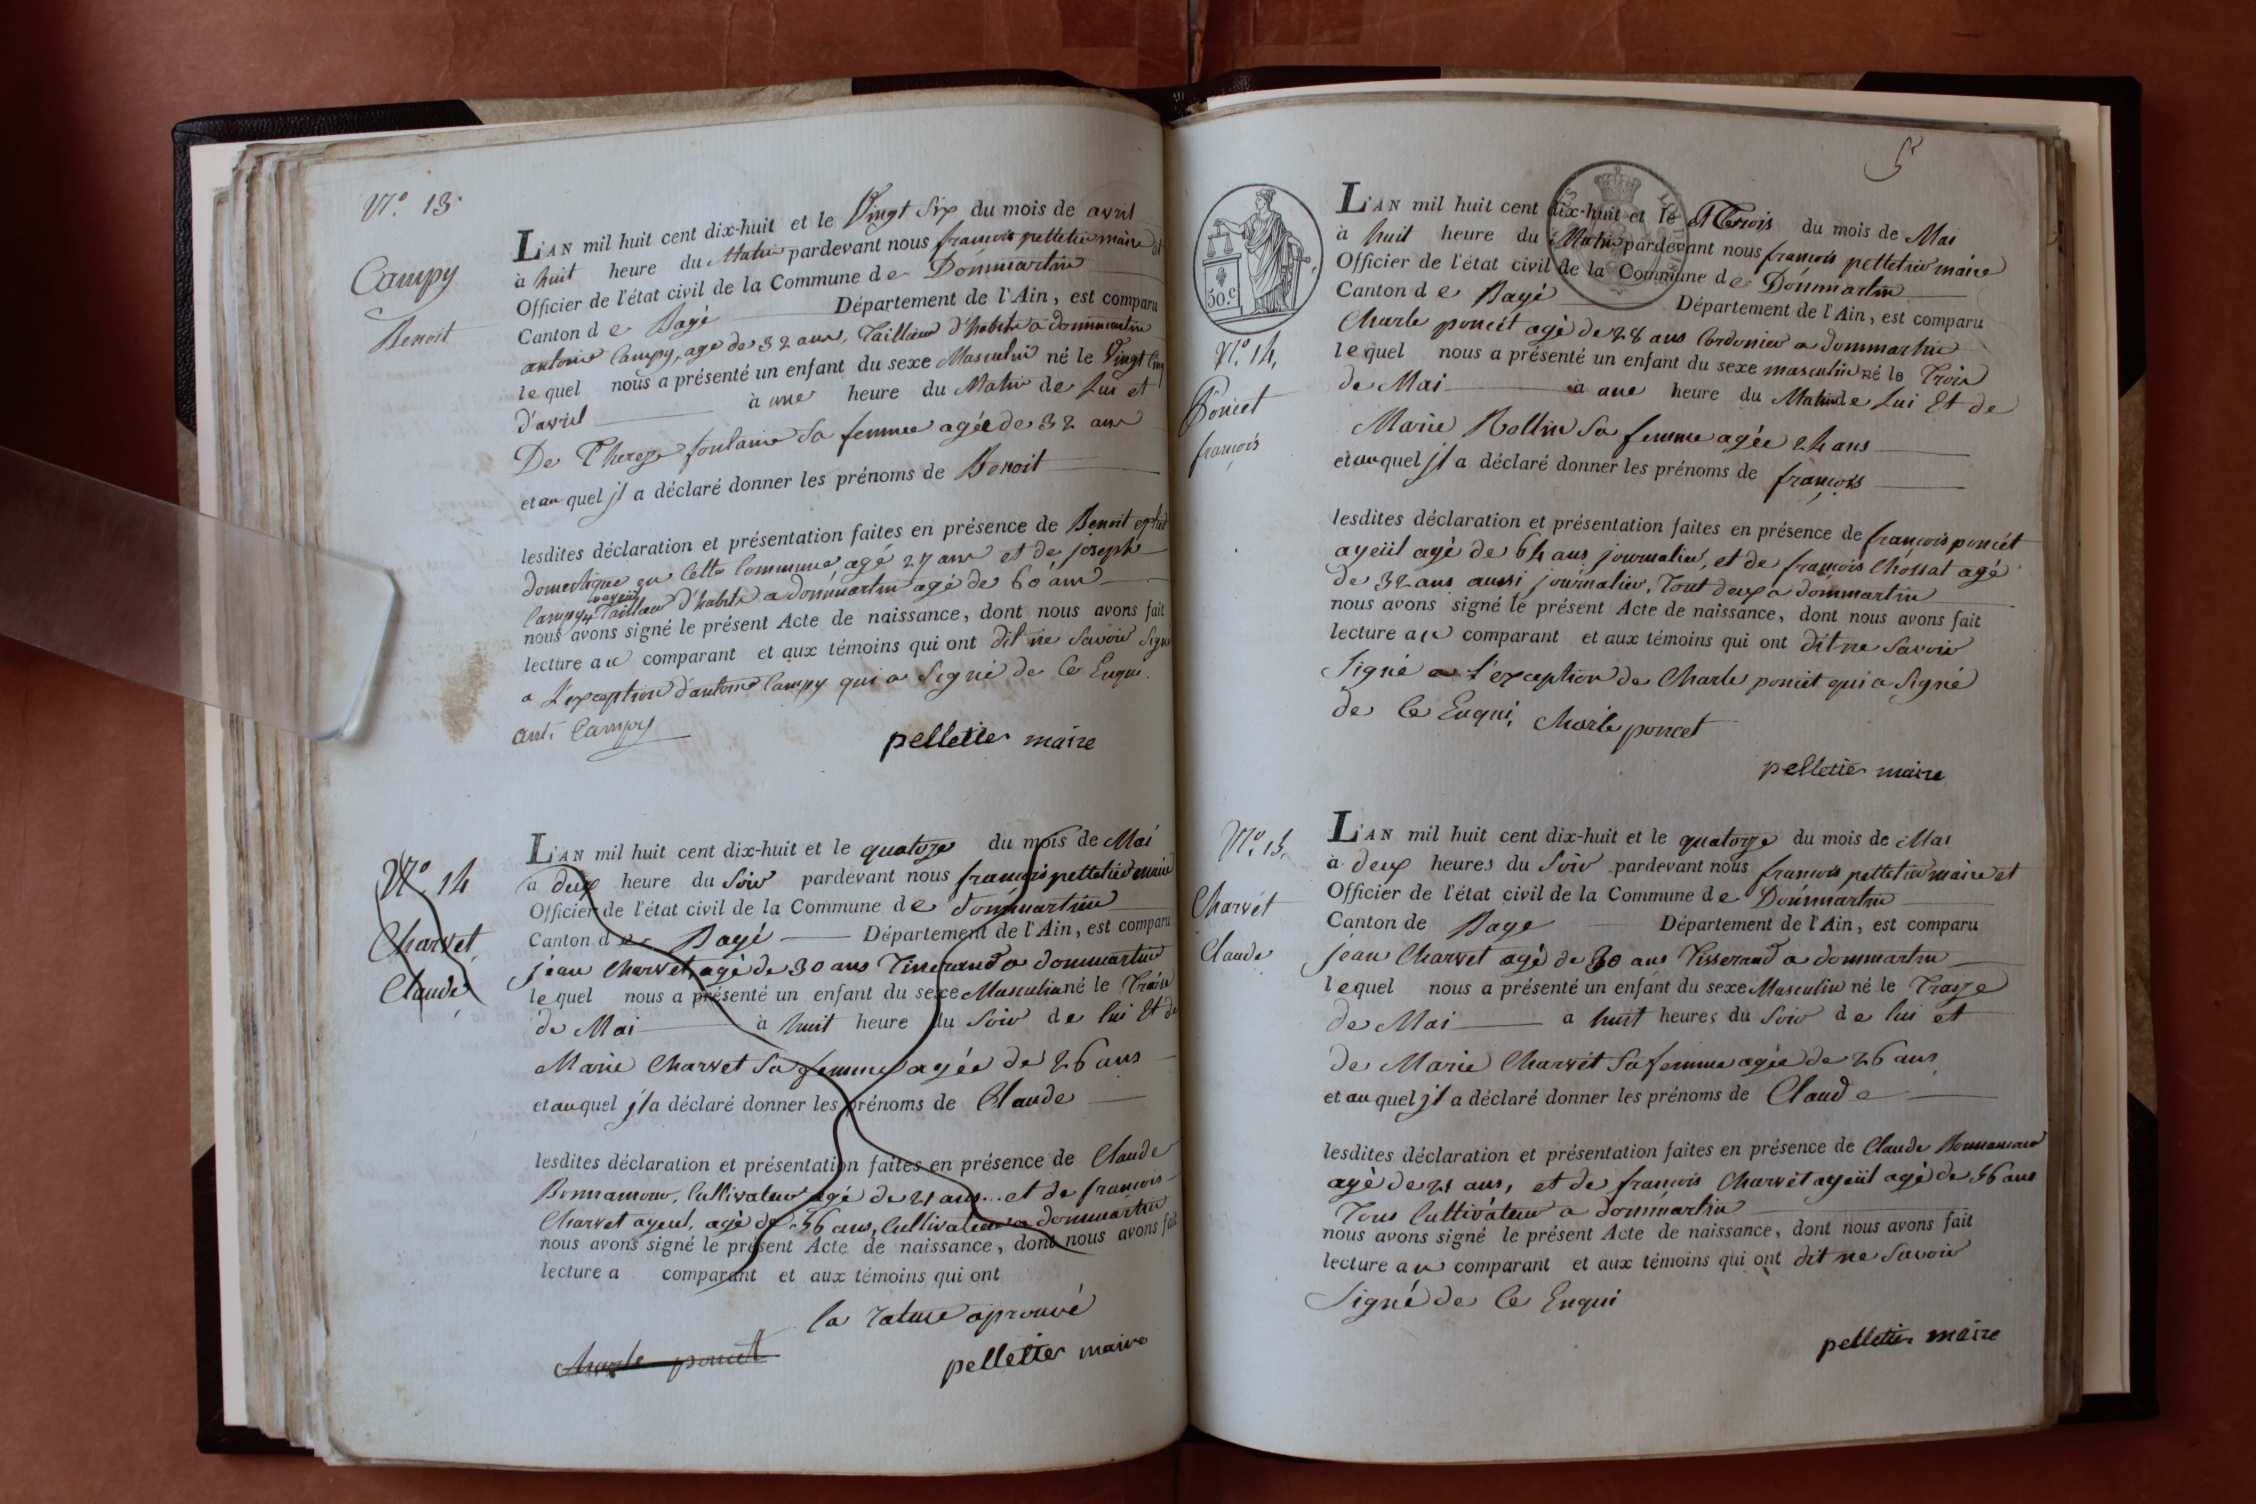 N.° 13.
Campy
Benoit
L'AN mil huit cent dix-huit et le Vingt Six du mois de avril
à huit heure du Matin pardevant nous françois pelletier maire et
Officier de l'état civil de la Commune de Dommartin
Canton de Bagé Département de l'Ain, est comparu
antoine Campy, agé de 32 ans, Tailleur d'habits a dommartin
lequel nous a présenté un enfant du sexe Masculin né le Vingt Cinq
d'avril à une heure du Matin de Lui et
De Thereze fontaine Sa femme agée de 32 ans
et au quel jl a déclaré donner les prénoms de Benoit
lesdites déclaration et présentation faites en présence de Benoit
domestique en Cette Commune agé 27 ans et de joseph
Campy ayeül Tailleur d'habits a dommartin agé de 60 ans
nous avons signé le présent Acte de naissance, dont nous avons fait
lecture au comparant et aux témoins qui ont dit ne Savoir Signé
a L'exception d'antoine Campy qui a Signé de Ce Enquis.
ant. Campy
pelletier maire
N.° 14
Charvet
Claude
L'AN mil huit cent dix-huit et le quatorze du mois de Mai
à deux heure du Soir pardevant nous françois pelletier maire
Officier de l'état civil de la Commune de dommartin
Canton de Bagé Département de l'Ain, est comparu
jean Charvet, agé de 30 ans Tisserand a dommartin
lequel nous a présenté un enfant du sexe Masculin né le Traize
de Mai à huit heure du Soir de lui Et de
Marie Charvet Sa femme agée de 26 ans
et au quel jl a déclaré donner les prénoms de Claude
lesdites déclaration et présentation faites en présence de Claude
Bonnamour, Cultivateur agé de 21 ans et de françois
Charvet ayeul, agé de 56 ans, Cultivateur a dommartin
nous avons signé le présent Acte de naissance, dont nous avons fait
lecture a comparant et aux témoins qui ont
la rature aprouvé
Charle poncet
pelletier maire
5
50.c
N.° 14,
Poncet
françois
L'AN mil huit cent dix-huit et le Trois du mois de Mai
à huit heure du Matin pardevant nous françois pelletier maire
Officier de l'état civil de la Commune de Dommartin
Canton de Bagé Département de l'Ain, est comparu
Charle poncét agé de 28 ans Cordonier a dommartin
lequel nous a présenté un enfant du sexe masculin né le Trois
de Mai à une heure du Matin de Lui Et de
Marie Rollin Sa femme agée 24 ans
et au quel jl a déclaré donner les prénoms de françois
lesdites déclaration et présentation faites en présence de françois poncét
ayeül agé de 64 ans journalier, et de françois Chossat agé
de 32 ans aussi journalier, Tout deux a dommartin
nous avons signé le présent Acte de naissance, dont nous avons fait
lecture au comparant et aux témoins qui ont dit ne Savoir
Signé a l'exception de Charle poncét qui a Signé
de Ce Enqui, Charle poncet
pelletier maire
N.° 15.
Charvét
Claude
L'AN mil huit cent dix-huit et le quatorze du mois de Mai
à deux heures du Soir pardevant nous françois pelletier maire et
Officier de l'état civil de la Commune de Dommartin
Canton de Bage Département de l'Ain, est comparu
jean Charvet agé de 30 ans Tisserand a dommartin
lequel nous a présenté un enfant du sexe Masculin né le Traize
de Mai à huit heures du Soir de lui et
de Marie Charvét Sa femme agée de 26 ans
et au quel jl a déclaré donner les prénoms de Claude
lesdites déclaration et présentation faites en présence de Claude Bonnamour
agé de 21 ans, et de françois Charvét ayeül agé de 56 ans
Tous Cultivateur a dommartin
nous avons signé le présent Acte de naissance, dont nous avons fait
lecture au comparant et aux témoins qui ont dit ne Savoir
Signé de Ce Enqui
pelletier maire